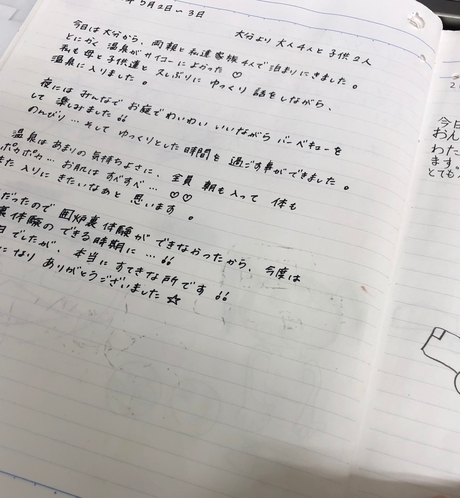 年5月2日〜3日
大分より 大人4人と子供2人
今日は大分から、両親と私達家族4人で泊まりにきました。
とにかく温泉がサイコーによかった♡
私も母と子供達と久しぶりにゆっくり話をしながら、
温泉に入りました。
夜にはみんなでお庭でわいわいいいながらバーベキューを
して楽しみました!!
のんびり…そしてゆっくりとした時間を過ごす事ができました。
温泉はあまりの気持ちよさに、全員朝も入って体も
ポカポカ… お肌はすべすべ…♡♡
また入りにきたいなあと思います。
だったので囲炉裏体験ができなかったから、今度は
裏体験のできる時期に…!!
日でしたが、本当にすてきな所です!!
になりありがとうございました☆
2
今日
おん
わた
ます。
とても